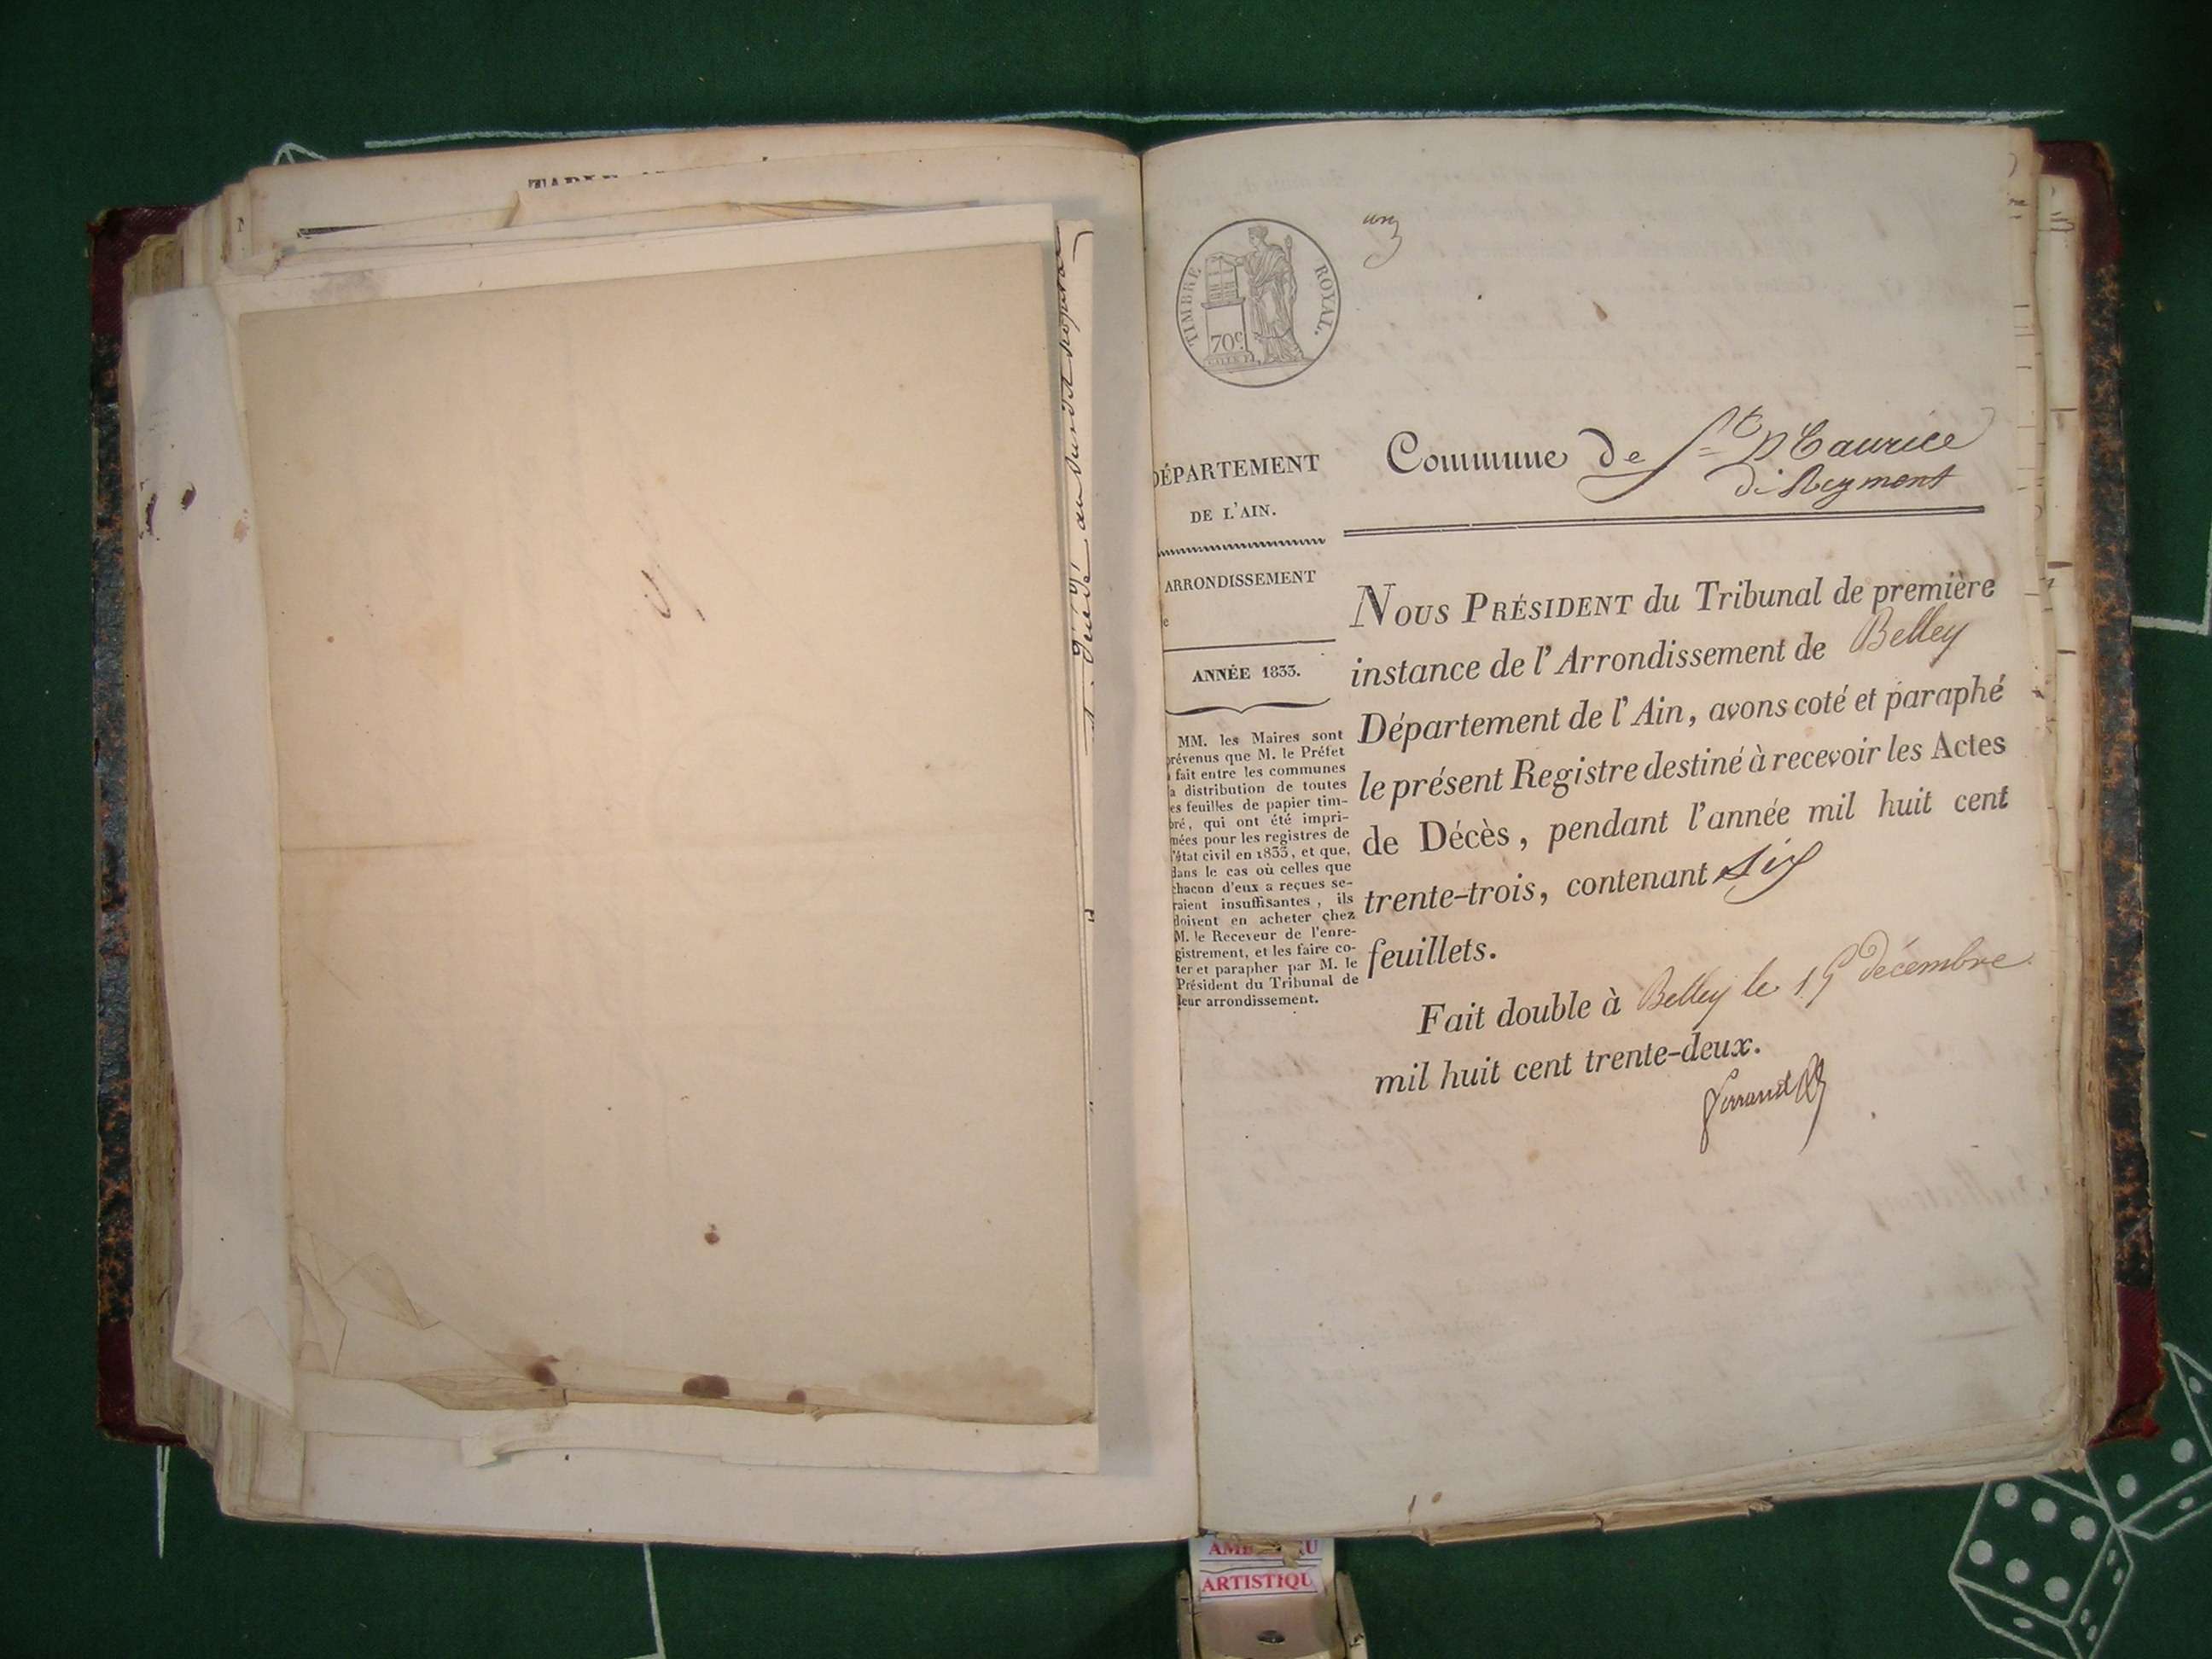 TABLE
décédé
un
TIMBRE ROYAL.
70c
DÉPARTEMENT
DE L'AIN.
ARRONDISSEMENT
e
ANNÉE 1833.
MM. les Maires sont
révenus que M. le Préfet
fait entre les communes
a distribution de toutes
es feuilles de papier tim-
bré, qui ont été impri-
mées pour les registres de
l'état civil en 1833, et que,
dans le cas où celles que
chacun d'eux a reçues se-
raient insuffisantes, ils
doivent en acheter chez
M. le Receveur de l'enre-
gistrement, et les faire co-
ter et parapher par M. le
Président du Tribunal de
leur arrondissement.
Commune de St Maurice
de Reymont
NOUS PRÉSIDENT du Tribunal de première
instance de l'Arrondissement de Belley
Département de l'Ain, avons coté et paraphé
le présent Registre destiné à recevoir les Actes
de Décès, pendant l'année mil huit cent
trente-trois, contenant six
feuillets.
Fait double à Belley le 15 décembre
mil huit cent trente-deux.
AMB
ARTISTIQU